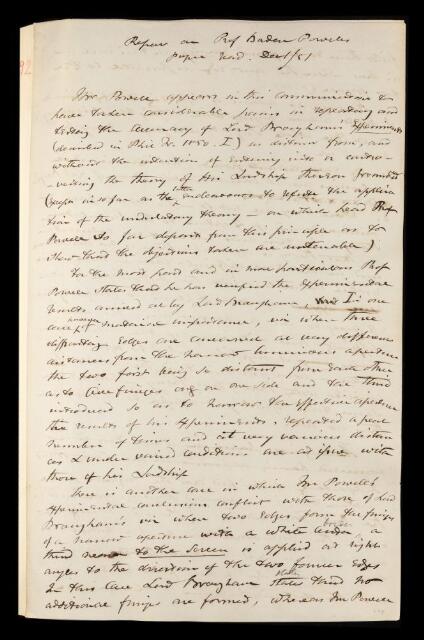 Report on Prof Baden Powell's
paper read. Dec 1/51
92
Mr Powell appears in this communication to
have taken considerable pains in repeating and
testing the accuracy of Lord Brougham's Experiments
(described in Phil Tr. 1850. I) as distinct from, and
without the intention of entering into or contro-
-verting the theory of His Lordship thereon founded
(except in so far as the latter endeavours to refute the applica
tion of the undulatory theory — on which head Prof
Powell so far departs from this principle as to
show that the objections taken are untenable)
For the most part and in most particulars Prof
Powell states that he has verified the experimental
results arrived at by Lord Brougham, In one
case however of material importance, viz when three
diffracting edges are concerned at very different
distances from the narrow luminous aperture
the two first being so distant from each other
as to give fringes only on one side and the third
introduced so as to narrow the effective aperture
the results of his experiments, repeated a great
number of times and at very various distan
ces & under varied conditions are at issue with
those of his Lordship
There is another case in which Mr Powell's
experimental conclusions conflict with those of Lord
Brougham's viz when two edges form the fringes
of a narrow aperture with a white border a
third near to the screen is applied at right
angles to the direction of the two former edges
In this case Lord Brougham states that no
additional fringes are formed, whereas Mr Powell